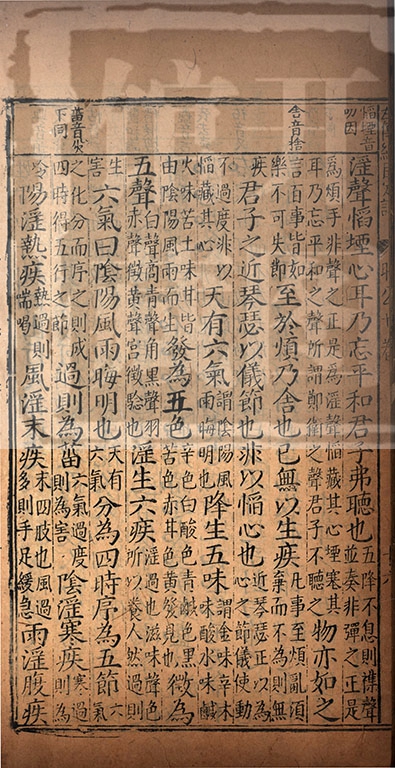 慆堙音
叨因
淫聲慆堙心耳乃忘平和君子弗聽也五降不息則襍聲並奏非彈之正是
爲煩手非聲之正是爲淫聲慆其心堙塞其耳乃忘平和之聲所謂鄭衛之聲君子不聽之物亦如之
舍音捨
言百事皆如樂不可失節至於煩乃舍也已無以生疾凡事至煩亂須棄而不為則無
疾君子之近琴瑟以儀節也非以慆心也近琴瑟正以為心之節儀使動
不過度非以慆藏其心天有六氣謂陰陽風雨晦明也降生五味謂金味辛木味酸水味鹹
火味苦土味甘皆由陰陽風雨而生發為五色辛色白酸色青鹹色黑苦色赤甘色黄發見也徵為
五聲白聲商青聲角黑聲羽赤聲徵黄聲宮徵驗也淫生六疾淫過也滋味聲色所以養人然過則
生害六氣曰陰陽風雨晦明也天有六氣分為四時序為五節六氣
菑音災
下同
之化分而序之則成四時得五行之節過則為菑六氣過度則為害陰淫寒疾寒過則為
冷陽淫熱疾熱過則喘喝風淫末疾末四肢也風過多則手足緩急雨淫腹疾